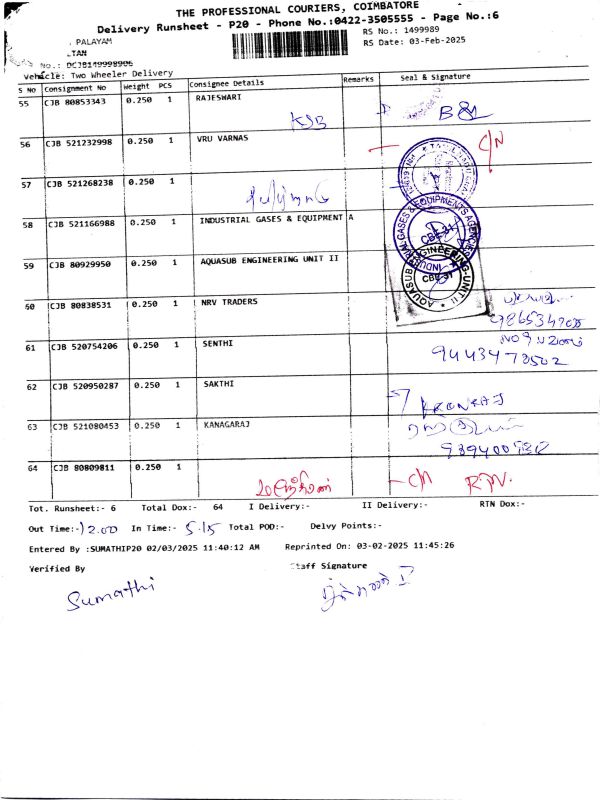 THE PROFESSIONAL COURIERS, COIMBATORE
Delivery Runsheet - P20 - Phone No.:0422-3505555 - Page No.:6
PALAYAM
RS No.: 1499989
RS Date: 03-Feb-2025
No.: DCJB149998906
Vehicle: Two Wheeler Delivery
S No Consignment No Weight PCS Consignee Details Remarks Seal & Signature
55 CJB 80853343 0.250 1 RAJESWARI
KSB
56 CJB 521232998 0.250 1 VRU VARNAS C/N
57 CJB 521268238 0.250 1
58 CJB 521166988 0.250 1 INDUSTRIAL GASES & EQUIPMENT A
INDUSTRIAL GASES & EQUIPMENTS AGENCIES
CBE-31
59 CJB 80929950 0.250 1 AQUASUB ENGINEERING UNIT II
AQUASUB ENGINEERING-UNIT II
CBE-31
60 CJB 80838531 0.250 1 NRV TRADERS
61 CJB 520754206 0.250 1 SENTHI
9443478502
62 CJB 520950287 0.250 1 SAKTHI
63 CJB 521080453 0.250 1 KANAGARAJ
64 CJB 80809811 0.250 1
C/N
Tot. Runsheet:- 6 Total Dox:- 64 I Delivery:- II Delivery:- RTN Dox:-
Out Time:-12.00 In Time:- 5.15 Total POD:- Delvy Points:-
Entered By :SUMATHIP20 02/03/2025 11:40:12 AM Reprinted On: 03-02-2025 11:45:26
Verified By Staff Signature
Sumathi